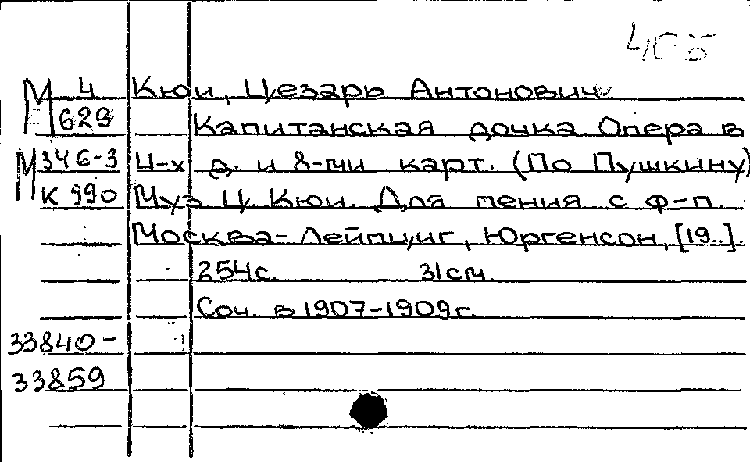 М 4 Кюи, Цезарь Антонович
629 Капитанская дочка Опера в
М 346-3 4-х д. и 8-ми карт. (По Пушкину)
К 990 Муз Ц. Кюи. Для пения с ф-п.
Москва-Лейпциг, Юргенсон, [19..].
254с. 31см.
Соч. в 1907-1909г.
33840-
33859